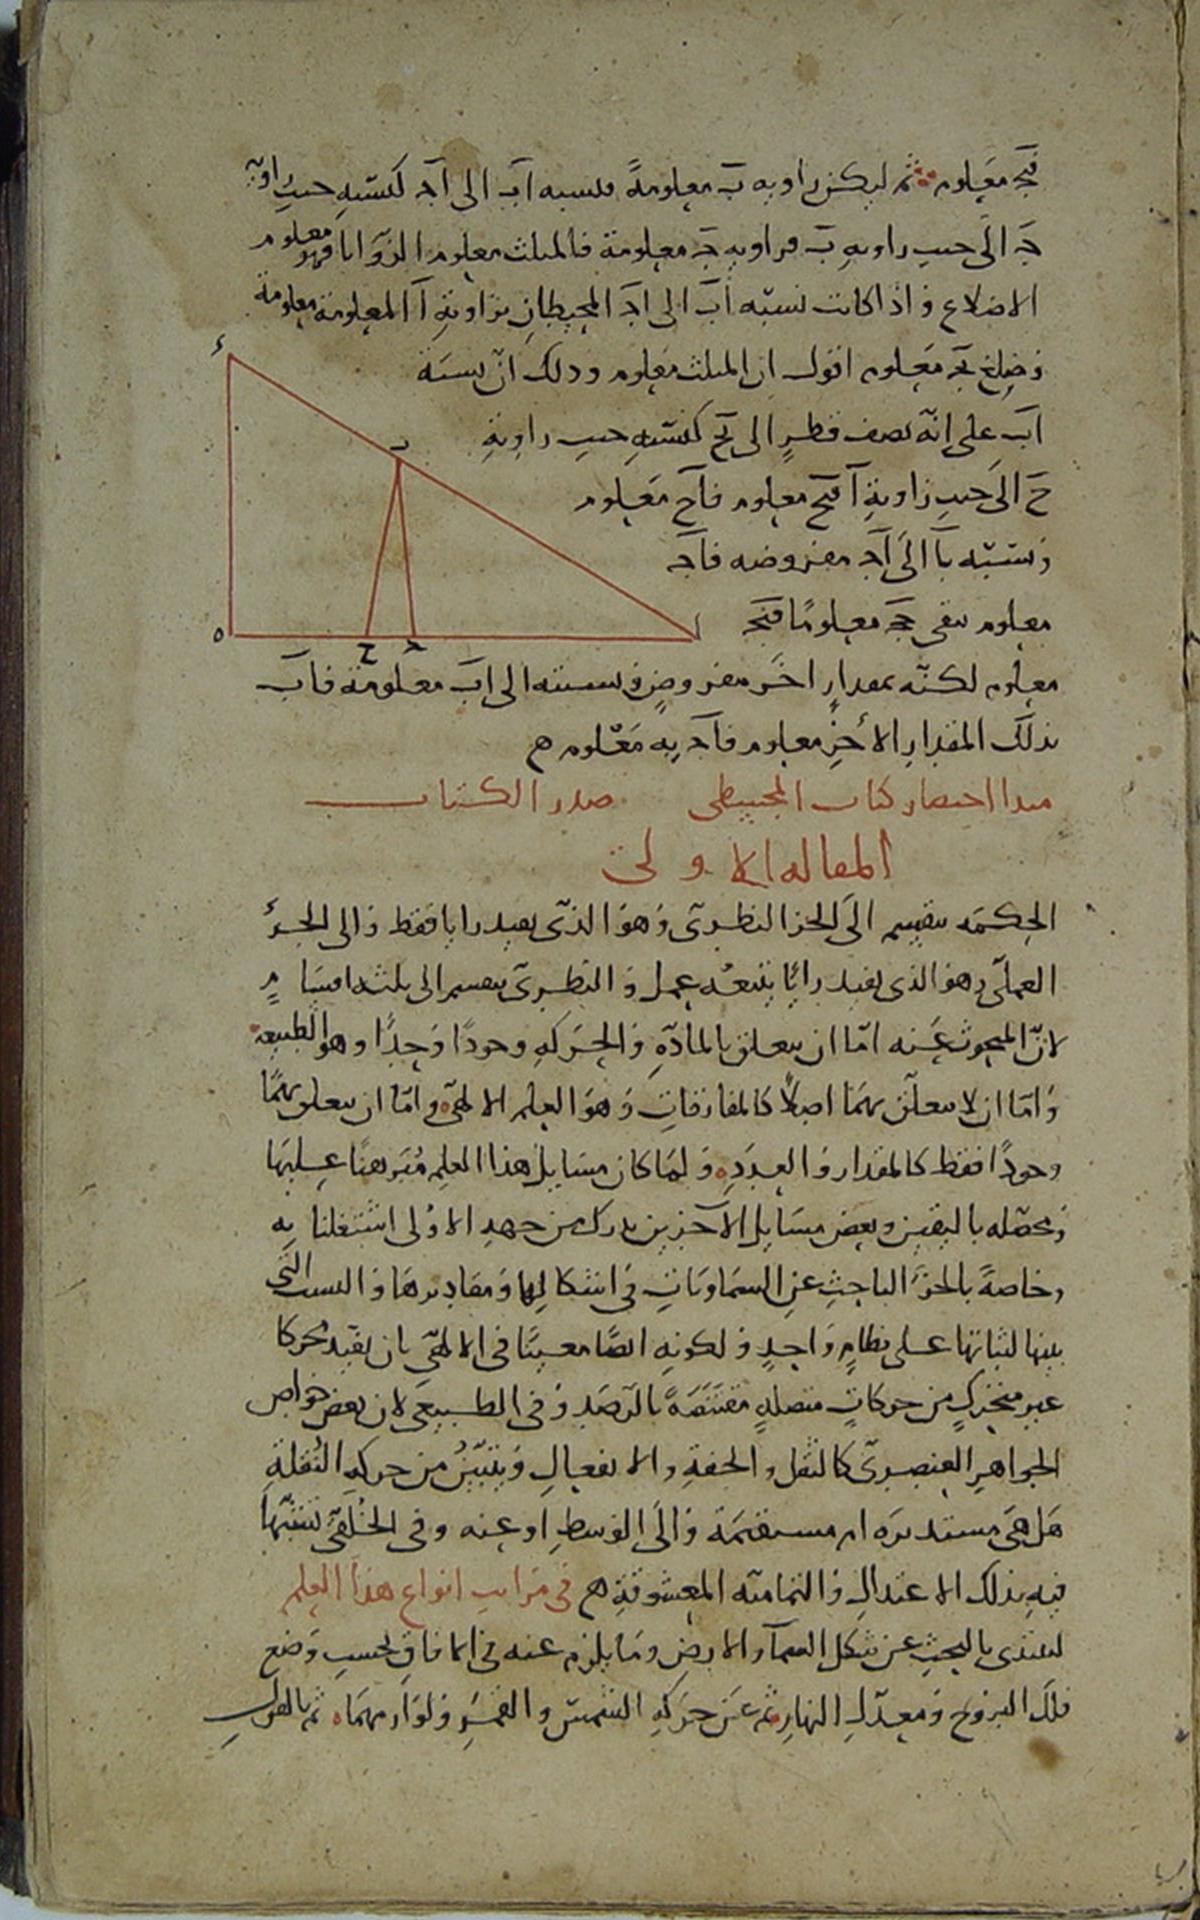 فبج معلوم ثم ليكن زاويه ب معلومةً فنسبه اب الى اج كنسبهِ جيب زاوية
ج الى جيب زاويهِ ب فزاويه ج معلومة فالمثلث معلوم الزوايا فهو معلوم
الاضلاع و اذا كانت نسبته اب الى اج المحيطان بزاوية ا المعلومة معلومة
وضلع بج معلوم اقول ان المثلث معلوم وذلك انّ نسبة
اب على انّه نصف قطرٍ الى بح كنسبهِ جيب زاوية
ح الى جيب زاوية ا فبح معلوم فاح معلوم
ونسبته با الى اج مفروضه فاج
معلوم يبقى حج معلومًا فبج
معلوم لكنّه بمقدارٍ اخر مفروضٍ فنسبته الى اب معلومة فاب
بذلك المقدار الأخرِ معلوم فاج به معلوم ه
مبدا اختصار كتاب المجسطى صدر الكتاب
المقاله الاولى
الحكمه ينقسم الى الجزا النظرى وهو الذى يفيد رايا فقط والى الجزء
العملى وهو الذى يفيد رايًا يتبعُه عمل و النظرى ينقسم الى ثلثه اقسامٍ
لانّ المبحوث عنه امّا ان يتعلق بالمادّةِ والحركهِ وجودًا وحدًّا وهو الطبيعة
وامّا ان لا يتعلق بهما اصلًا كالمفارقاتِ وهو العلم الالهىّ وامّا ان يتعلق بهما
وجودًا فقط كالمقدار و العددِ ولما كان مسايل هذا العلم مبرهنًا عليها
ومحصّله باليقين وبعض مسايل الآخرين يدرك من جهه الاولى اشتغلنا به
وخاصةً بالجزء الباحثِ عن السماوياتِ فى اشكالها ومقاديرها والنسب التى
بينها لثباتها على نظامٍ واحدٍ ولكونه ايضًا معينًا فى الالهى بان يفيد محركا
غير متحركٍ من حركاتٍ متصلهٍ مقتنصةً بالرصد وفى الطبيعى لان بعض خواص
الجواهر العنصرىّ كالثقل والخفة والانفعالِ ويتبيّنُ من حركه النُقلةِ
هل هى مستديره ام مستقيمة والى الوسطِ او عنه وفى الخُلقى لتشبّهنا
فيه بذلك الاعتدالِ والتماميّه المعشوقةِ ه فى مراتب انواع هذا العلم
لنبتدى بالبحث عن شكل السمآ والارض وما يلزم عنه فى الافاق بحسب وضع
فلك البروج ومعدّل النهار ثم عن حركهِ الشمس والقمر ولوازمهما ثم بالقول
ا
ب
ج
ح
د
ه